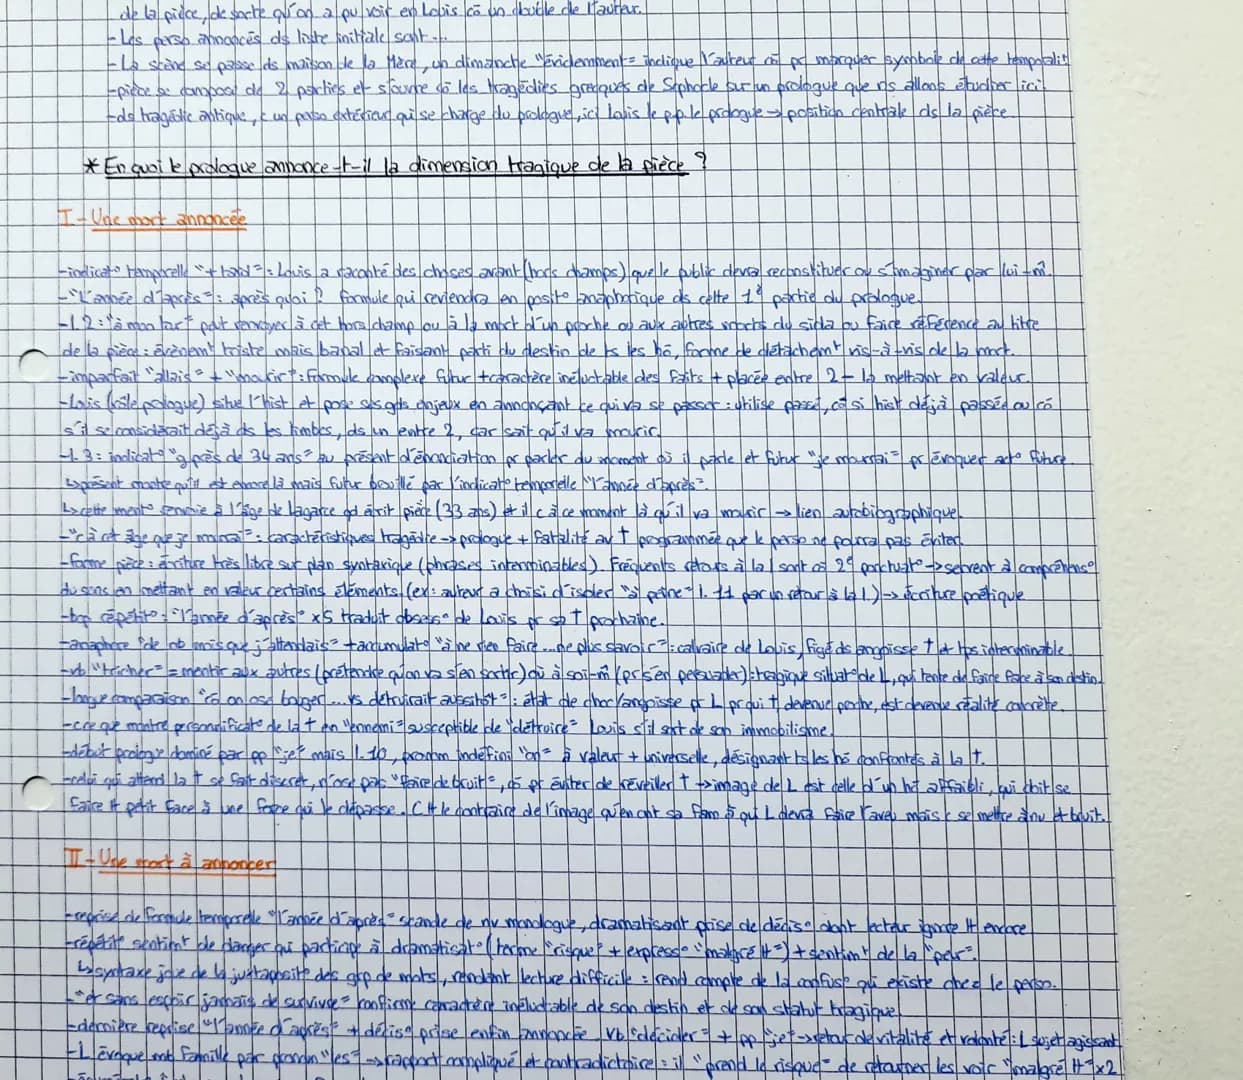 de la pièce, de sorte qu'on a pu voir en Louis cō un double de l'auteur.
- Les perso annoncés ds liste initiale sont...
- La scène se passe ds maison de la Mère, un dimanche "évidemment" = indique l'auteur cō pr marquer symbole de cette temporalité
- pièce se compose de 2 parties et s'ouvre cō les tragédies grecques de Sophocle sur un prologue que ns allons étudier ici
- ds tragédie antique, c un perso extérieur qui se charge du prologue, ici Louis le pp. le prologue → position centrale ds la pièce
* En quoi le prologue annonce-t-il la dimension tragique de la pièce ?
I - Une mort annoncée
- indicat° temporelle "+ tard" = Louis a raconté des choses avant (hors champs) que le public devra reconstituer ou s'imaginer par lui-m̂.
- "L'année d'après" : après quoi ? formule qui reviendra en posit° anaphorique ds cette 1e partie du prologue.
- l. 2 : "à mon tour" peut renvoyer à cet hors champ ou à la mort d'un proche ou aux autres morts du sida ou faire référence au titre
de la pièce : évènem^t triste mais banal et faisant parti du destin de ts les hō, forme de détachem^t vis-à-vis de la mort.
- imparfait "allais" + "mourir" : formule complexe futur + caractère inéluctable des faits + placée entre 2 - la mettant en valeur.
- Louis (rôle prologue) situe l'hist et pose ses gds enjeux en annonçant ce qui va se passer : utilise passé, cō si hist déjà passée ou cō
s'il se considérait déjà ds les limbes, ds un entre 2, car sait qu'il va mourir.
- l. 3 : indicat° "près de 34 ans" au présent d'énonciation pr parler du moment où il parle et futur "je mourrai" pr évoquer act° future.
↳ présent montre qu'il est encore là mais futur brouillé par l'indicat° temporelle "l'année d'après".
↳ cette ment° renvoie à l'âge de Lagarce qd écrit pièce (33 ans) et il c à ce moment là qu'il va mourir → lien autobiographique.
- "c'à cet âge que je mourrai" : caractéristiques tragédie → prologue + fatalité av † programmée que le perso ne pourra pas éviter.
- forme pièce : écriture très libre sur plan syntaxique (phrases interminables). Fréquents retours à la l sont cō 2e ponctuat° → servent à compréhens°
du sens en mettant en valeur certains éléments (ex : auteur a choisi d'isoler "à peine" l. 11 par un retour à la l.) → écriture poétique
- bcp répétit° : "l'année d'après" x5 traduit obsess° de Louis pr sa † prochaine.
- anaphore "de nb mois que j'attendais" + accumulat° "à ne rien faire... ne plus savoir" : calvaire de Louis, figé ds angoisse † et tps interminable.
- vb "tricher" = mentir aux autres (prétendre qu'on va s'en sortir) où à soi-m̂ (pr s'en persuader) : tragique situat° de L, qui tente de faire face à son destin
- longue comparaison "cō on ose bouger... vs détruirait aussitôt" : état de choc/angoisse pr L pr qui † devenue proche, est devenue réalité concrète.
- ce que montre personnificat° de la † en "ennemi" susceptible de "détruire" Louis s'il sort de son immobilisme.
- début prologue dominé par pp "je" mais l. 10, pronom indéfini "on" à valeur + universelle, désignant ts les hō confrontés à la †.
- celui qui attend la † se fait discret, n'ose pas "faire de bruit", cō pr éviter de réveiller † → image de L est celle d'un hō affaibli, qui doit se
faire tt petit face à une force qui le dépasse. C tt le contraire de l'image qu'en ont sa fam à qui L devra faire l'aveu mais c se mettre à nu et bruit.
II - Une mort à annoncer
- reprise de formule temporelle "l'année d'après" scande de nv monologue, dramatisant prise de décis° dont lecteur ignore tt encore
- répétit° sentim^t de danger qui participe à dramatisat° (terme "risque" + express° "malgré tt") + sentim^t de la "peur".
↳ syntaxe joue de la juxtaposit° des grp de mots, rendant lecture difficile : rend compte de la confus° qui existe chez le perso.
- "et sans espoir jamais de survivre" confirme caractère inéluctable de son destin et de son statut tragique
- dernière reprise "l'année d'après" + décis° prise enfin annoncée. Vb "décider" + pp "je" → retour de vitalité et volonté : L sujet agissant
- L évoque mb famille par pronom "les" → rapport compliqué et contradictoire : il "prend le risque" de retourner les voir "malgré tt" x2